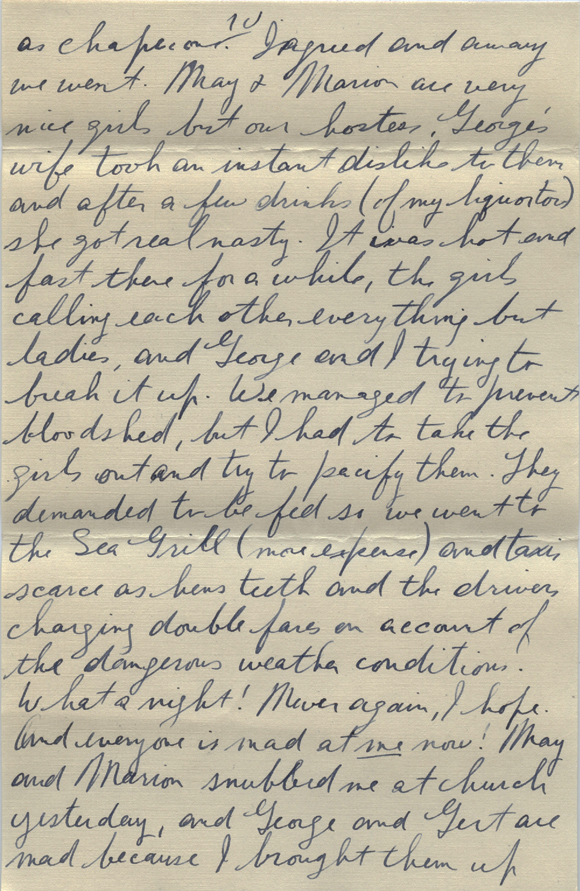 10
as chaperon. I agreed and away
we went. May & Marion are very
nice girls but our hostess, George's
wife took an instant dislike to them
and after a few drinks (of my liquor too)
she got real nasty. It was hot and
fast there for a while, the girls
calling each other everything but
ladies, and George and I trying to
break it up. We managed to prevent
bloodshed, but I had to take the
girls out and try to pacify them. They
demanded to be fed so we went to
the Sea Grill (more expense) and taxis
scarce as hens teeth and the drivers
charging double fares on account of
the dangerous weather conditions.
What a night! Never again, I hope.
And everyone is mad at me now! May
and Marion snubbed me at church
yesterday, and George and Gert are
mad because I brought them up